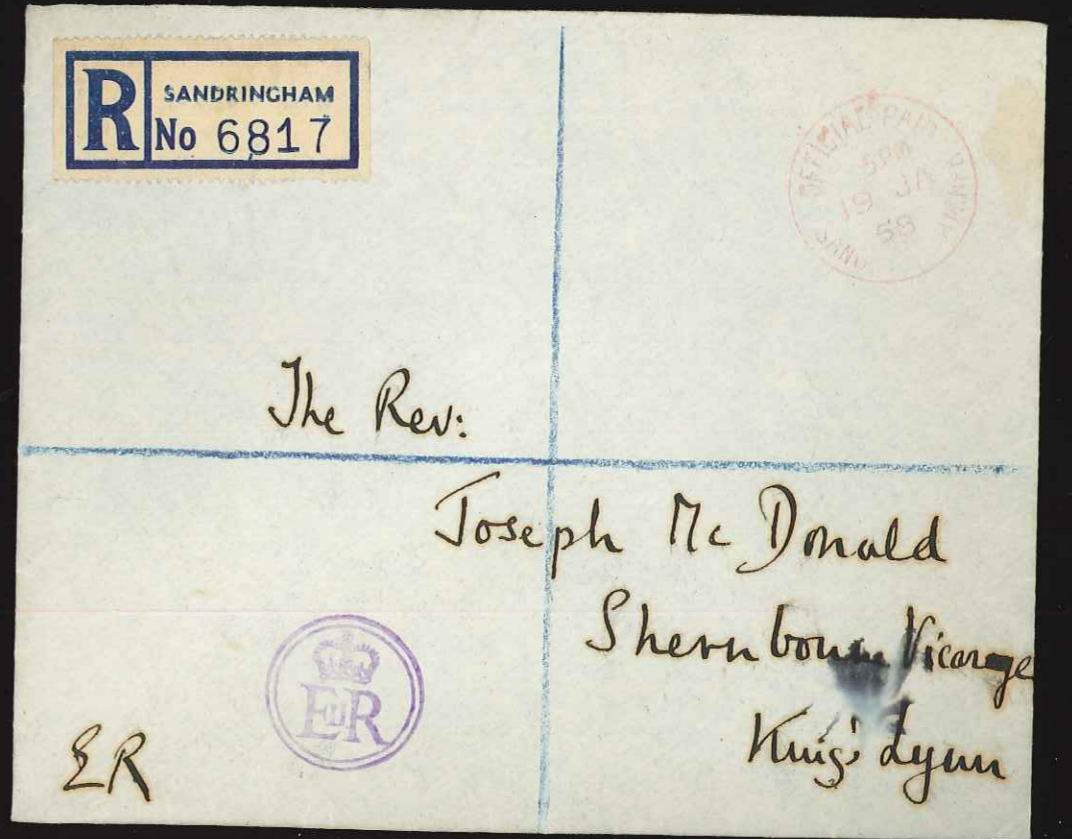 R SANDRINGHAM
No 6817
OFFICIAL PAID
5 PM
19 JA
58
The Rev:
Joseph Mc Donald
Vicarage
King's Lynn
EIIR
ER